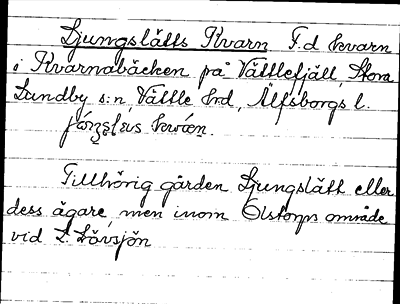 Ljungslätts Kvarn F.d kvarn
i Kvarnabäcken på Vättlefjäll, Stora
Lundby s:n, Vättle hrd, Älfsborgs l.
Tillhörig gården Ljungslätt eller
dess ägare, men inom Olstorps område
vid L. Lövsjön